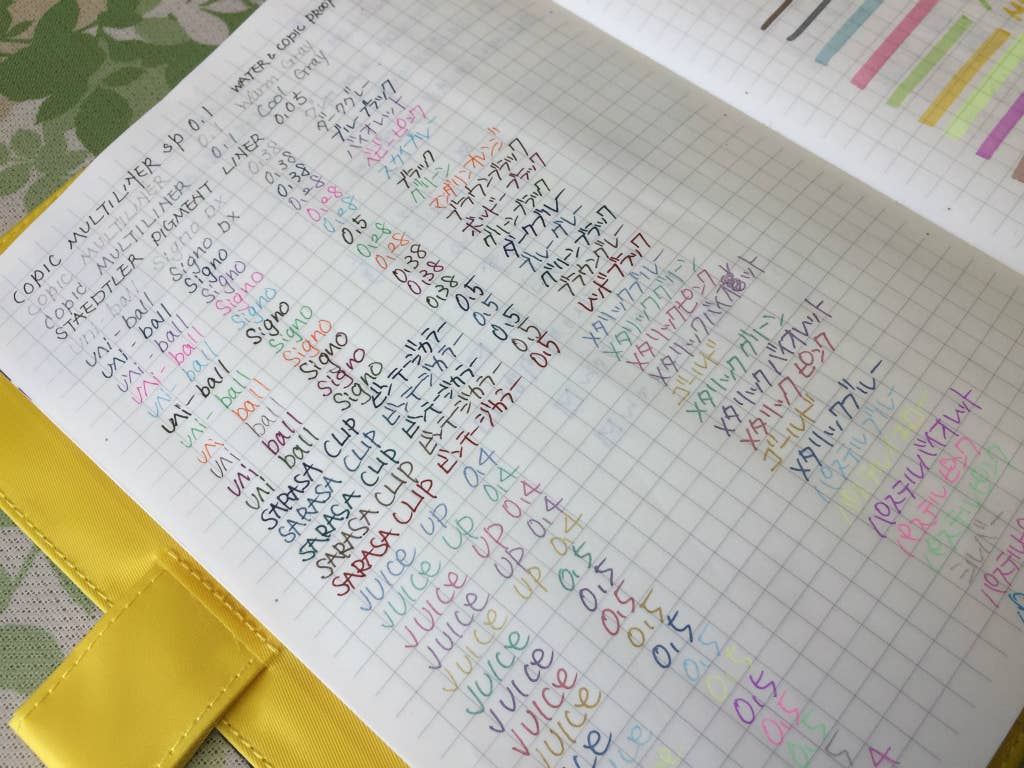 COPIC MULTILINER sp 0.1 WATER & COPIC PROOF
COPIC MULTILINER 0.1 Warm Gray
Copic MULTILINER 0.1 Cool Gray
STAEDTLER PIGMENT LINER 0.05
uni-ball Signo DX 0.38
uni-ball Signo DX 0.38 ブルーブラック
uni-ball Signo 0.38 バイオレット
uni-ball Signo 0.28 ベビーピンク
uni-ball Signo 0.28 スカイブルー
uni-ball Signo 0.5 ブラック
uni-ball Signo 0.28 グリーン
uni-ball Signo 0.28 マンダリンオレンジ
uni ball Signo 0.38
uni ball Signo 0.38
SARASA CLIP ビンテージカラー 0.5 ダークグレー
SARASA CLIP ビンテージカラー 0.5 ブルーグレー
SARASA CLIP ビンテージカラー 0.5 グリーンブラック
SARASA CLIP ビンテージカラー 0.5 ブラウングレー
SARASA CLIP ビンテージカラー 0.5 レッドブラック
JUICE UP 0.4 メタリックブルー
JUICE UP 0.4 メタリックグリーン
JUICE UP 0.4 メタリックピンク
JUICE UP 0.4 メタリックバイオレット
JUICE UP 0.4 ゴールド
JUICE 0.5 メタリックグリーン
JUICE 0.5 メタリックバイオレット
JUICE 0.5 メタリックピンク
JUICE 0.5 ゴールド
JUICE 0.5 メタリックブルー
0.5 パステルブルー
0.5
0.5 パステルバイオレット
0.5 パステルピンク
0.5 パステルグリーン
シルバー